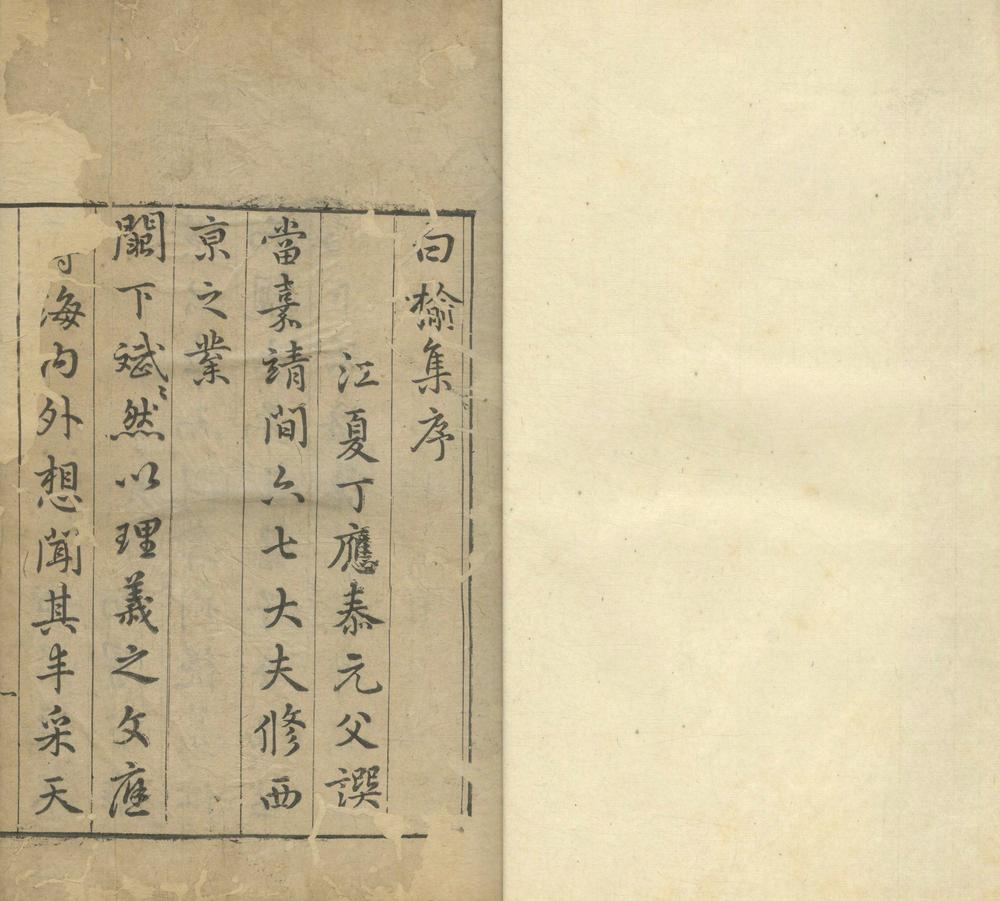 白榆集序
江夏丁應泰元父譔
當嘉靖間六七大夫修西
京之業
闕下斌斌然以理義之文應
海內外想聞其丰采天